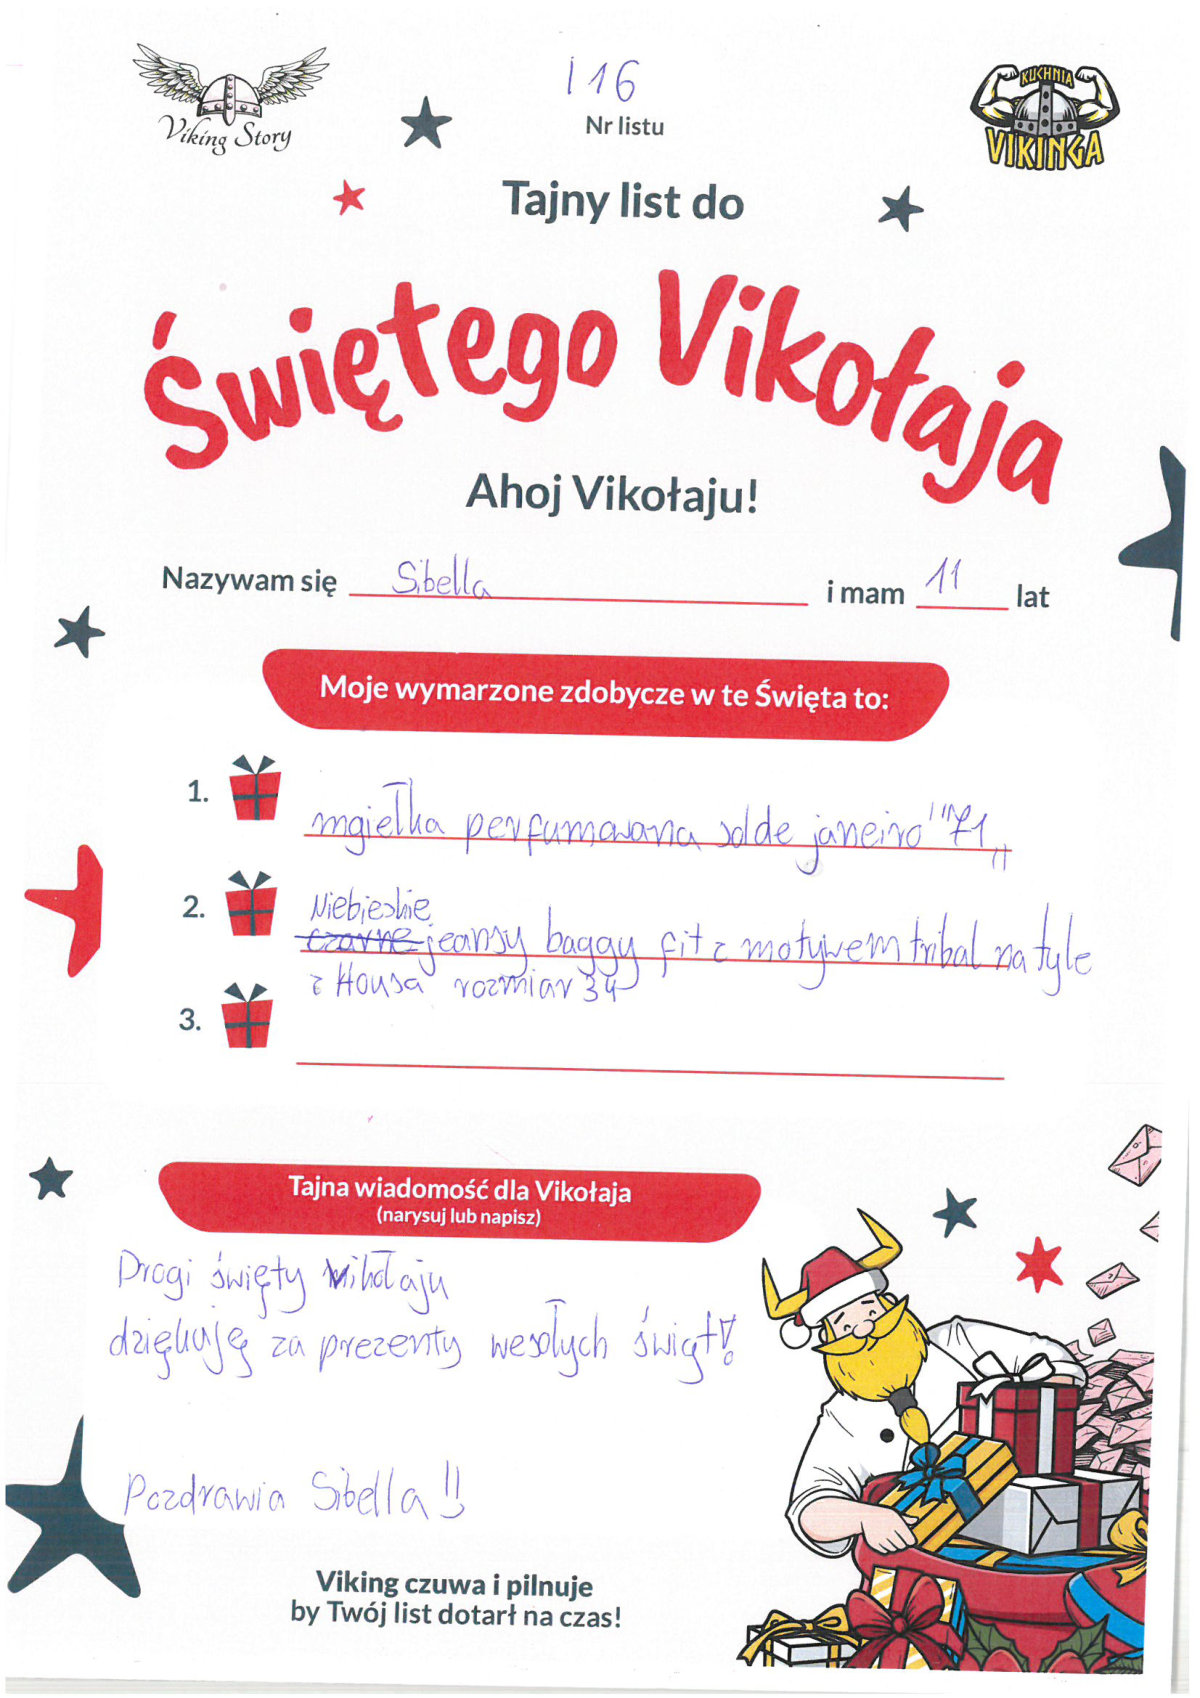 Viking Story
116
Nr listu
KUCHNIA
VIKINGA
Tajny list do
Świętego Vikołaja
Ahoj Vikołaju!
Nazywam się Sibella i mam 11 lat
Moje wymarzone zdobycze w te Święta to:
1. mgiełka perfumowana solde janeiro "71"
2. Niebieskie
czarne jeansy baggy fit z motywem tribal na tyle
z Housa rozmiar 34
3.
Tajna wiadomość dla Vikołaja
(narysuj lub napisz)
Drogi święty Vikołaju
dziękuję za prezenty wesołych świąt!
Pozdrawia Sibella!!
Viking czuwa i pilnuje
by Twój list dotarł na czas!